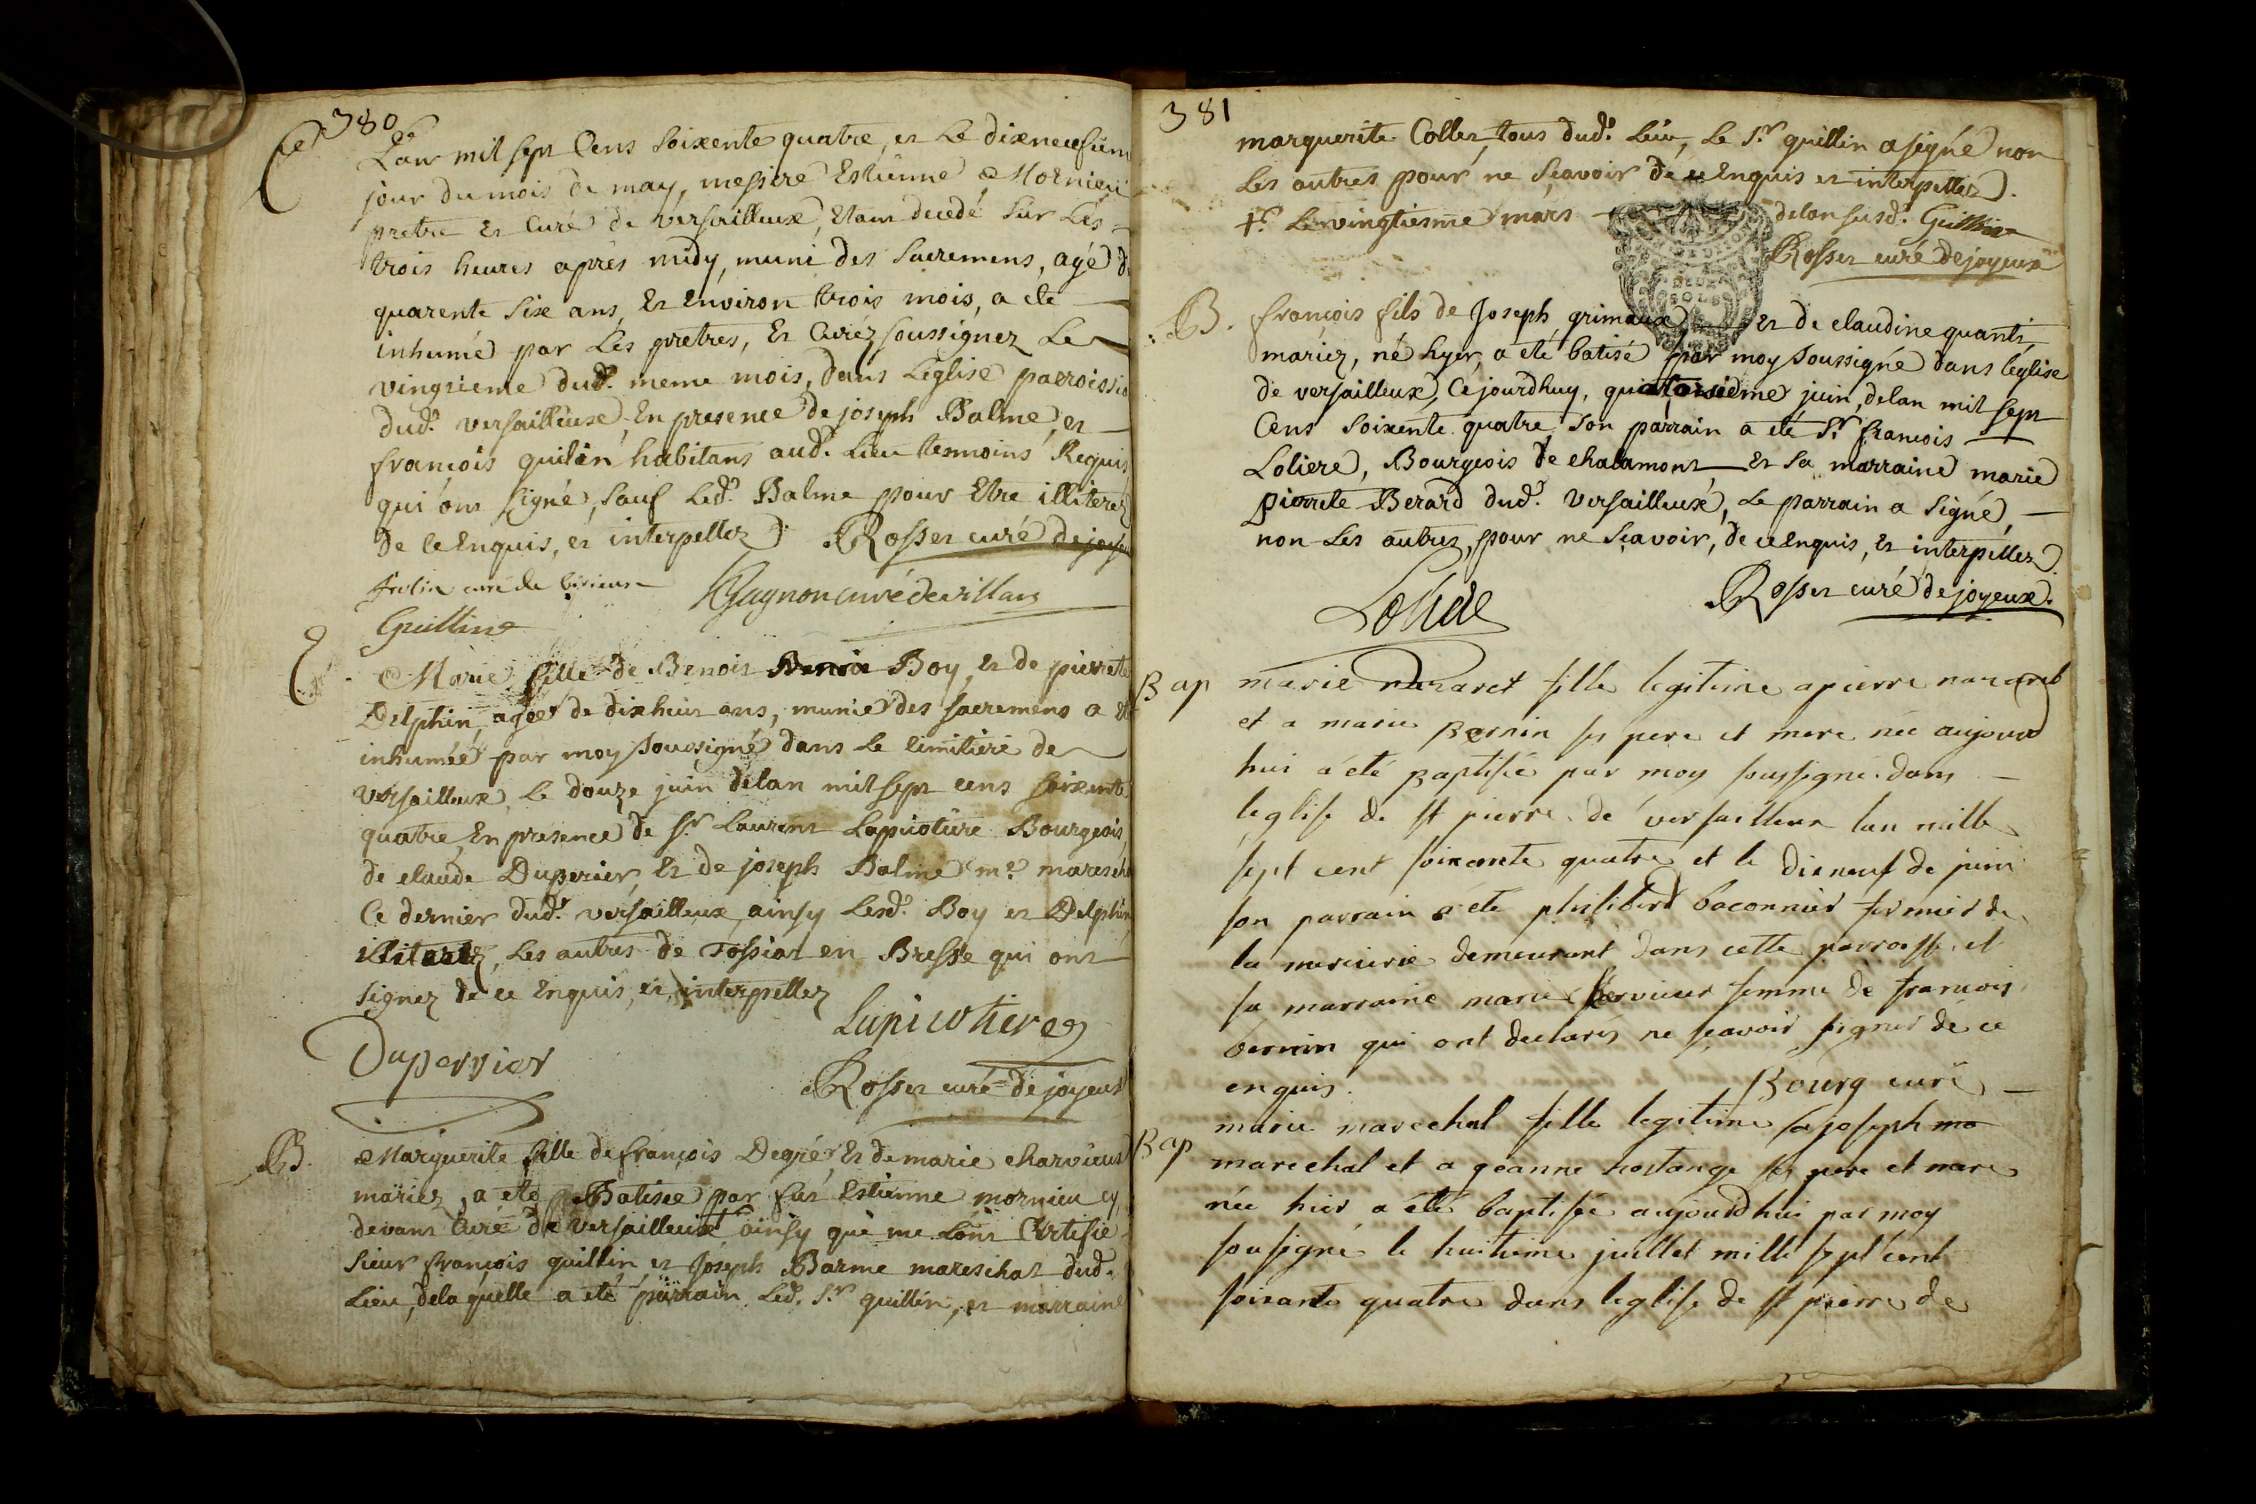 380
L'an mil sept Cens Soixente quatre, et Le dixneufiem
jour du mois de may, messire Estienne Mornieu
pretre Et Curé de Versailleux, Etant decedé Sur Les
trois heures après midy, muni des Sacremens, agé d
quarente Six ans, Et Environ trois mois, a eté
inhumé par Les pretres, Et Curéz soussignez Le
vingtieme dud. meme mois, dans L'eglise parroissia
dud. Versailleux, En presence de joseph Balme, et
françois guilin habitans aud. Lieu temoins Requis
qui ont signé, sauf Led. Balme pour Etre illiteré
de ce Enquis, et interpellez Rosset curé de joyeu
curé de birieux Gagnon curé de villars
Guillin
Marie fille de Benoit Boy, et de pierrete
Delphin, agée de dixhuit ans, munie des sacremens a eté
inhumée par moy soussigné dans Le cimitiere de
Versailleux, Le douze juin delan mil sept cens soixente
quatre, En presence de Sr. Laurent Lapicotiere Bourgeois,
de claude Duperier, Et de joseph Balme me. marescha
Ce dernier dud. Versailleux, ainsy Lesd. Boy et Delphin
illiterez, Les autres de Tossiat en Bresse qui ont
signez de ce Enquis, et interpellez
Lapicotiere
Duperrier
Rosset curé de joyeux
B. Marguerite fille de françois Degré, Et de marie charvieux
mariez, a eté Batisée par feu Estienne mornieu cy
devant Curé de Versailleux ainsy que me L'ont Certifié
Sieur françois guillin et Joseph Barme mareschat dud.
Lieu, delaquelle a eté parrain Led. Sr. guillin, et marraine
381
marguerite Collet, tous dud. Lieu, Le Sr. guillin a signé non
Les autres pour ne Sçavoir de ce Enquis et interpellez.
+. Le vingtiesme mars delan susd. Guillin
Rosset curé de joyeux
DEUX SOLS
B. françois fils de Joseph grimaux Et de claudine quanti
mariez, né hyer, a eté batisé par moy soussigné dans l'eglise
de versailleux, Cejourdhuy, quatorsieme juin, delan mil sept
Cens Soixente quatre, Son parrain a eté Sr. françois
Loliere, Bourgeois de chalamont Et Sa marraine marie
pierrete Berard dud. Versailleux, Le parrain a Signé,
non Les autres, pour ne Sçavoir, de ce Enquis, Et interpellez.
Rosset curé de joyeux.
Bap marie nazaret fille legitime a pierre nazaret
et a marie Bernin ses pere et mere née aujourd
hui a été Baptisée par moy soussigné dans
leglise de st pierre de versailleux lan mille
sept cent soixante quatre et le dix neuf de juin
son parrain a été philibert baconnier fermier de
la mercerie demeurant dans cette parroisse et
sa marraine marie servieux femme de françois
bernin qui ont declarés ne sçavoir signer de ce
enquis. Bourg curé
Bap marie marechal fille legitime a joseph ma
marechal et a geanne hostange ses pere et mere
née hier a été baptisée aujourdhui par moy
sousigné le huitieme juillet mille sept cent
soixante quatre dans leglise de st pierre de